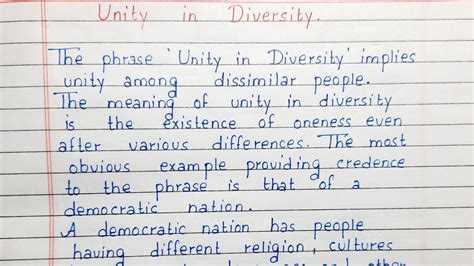 Unity in Diversity.
The phrase 'Unity in Diversity' implies
unity among dissimilar people.
The meaning of unity in diversity
is the existence of oneness even
after various differences. The most
obvious example providing credence
to the phrase is that of a
democratic nation.
A democratic nation has people
having different religion, cultures